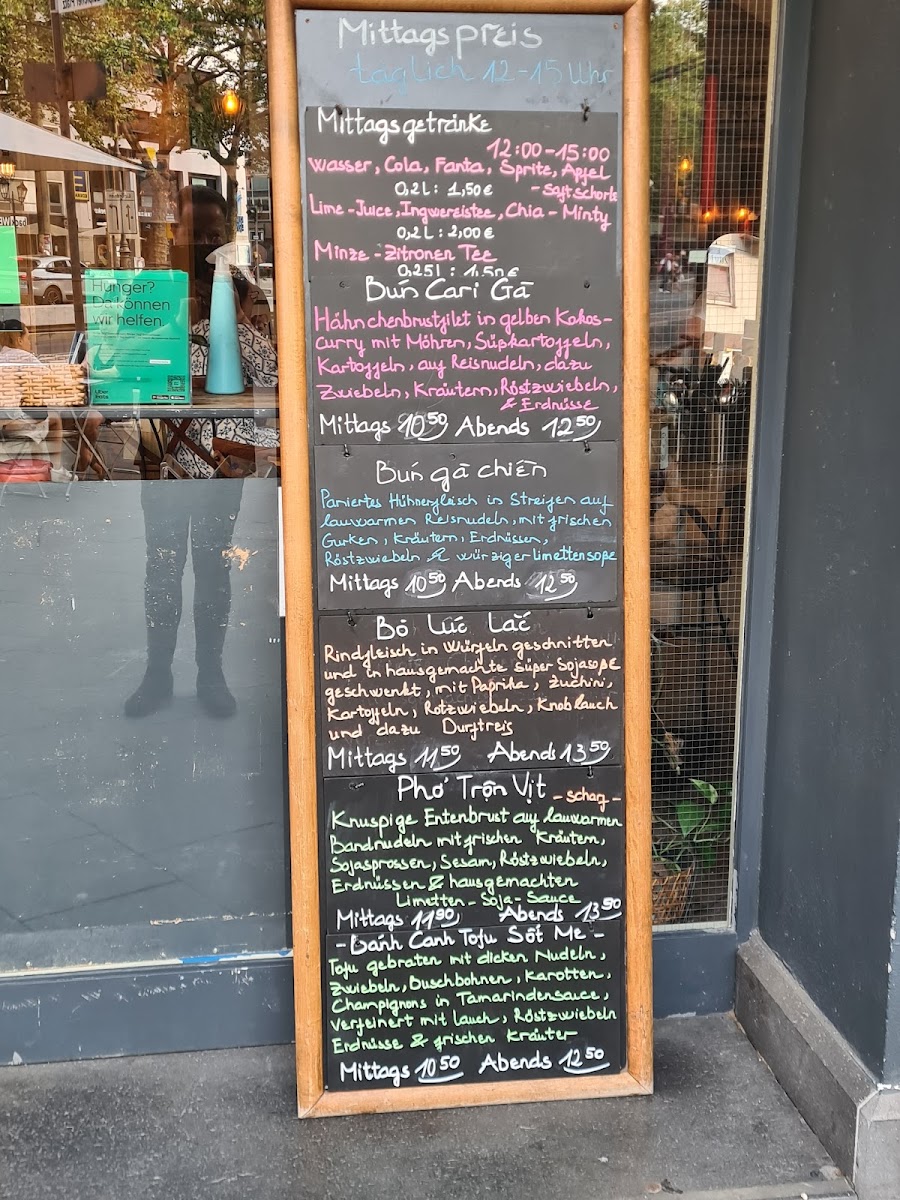 Mittagspreis
täglich 12-15 Uhr
Mittagsgetränke
12:00-15:00
Wasser, Cola, Fanta, Sprite, Apfel
0,2L: 1,50€ - Saftschorle
Lime-Juice, Ingwereistee, Chia-Minty
0,2L: 2,00€
Minze-Zitronen Tee
0,25l: 1,50€
Bún Cari Gà
Hähnchenbrustfilet in gelben Kokos-
curry mit Möhren, Süßkartoffeln,
Kartoffeln, auf Reisnudeln, dazu
Zwiebeln, Kräutern, Röstzwiebeln,
& Erdnüsse
Mittags 10⁵⁰ Abends 12⁵⁰
Bún gà chiên
Paniertes Hühnerfleisch in Streifen auf
lauwarmen Reisnudeln, mit frischen
Gurken, Kräutern, Erdnüssen,
Röstzwiebeln & würziger limettensoße
Mittags 10⁵⁰ Abends 12⁵⁰
Bò Lúc Lắc
Rindfleisch in Würfeln geschnitten
und in hausgemachte süper Sojasoße
geschwenkt, mit Paprika, Zuchini,
Kartoffeln, Rotzwiebeln, Knoblauch
und dazu Duftreis
Mittags 11⁵⁰ Abends 13⁵⁰
Phở Trộn Vịt - scharf -
Knuspige Entenbrust auf lauwarmen
Bandnudeln mit frischen Kräutern,
Sojasprossen, Sesam, Röstzwiebeln,
Erdnüssen & hausgemachten
Limetten-Soja-Sauce
Mittags 11⁹⁰ Abends 13⁹⁰
- Bánh Canh Tofu Sốt Me -
Tofu gebraten mit dicken Nudeln,
Zwiebeln, Buschbohnen, Karotten,
Champignons in Tamarindensauce,
verfeinert mit lauch, Röstzwiebeln
Erdnüsse & frischen Kräuter
Mittags 10⁵⁰ Abends 12⁵⁰
Hunger?
Da können
wir helfen.